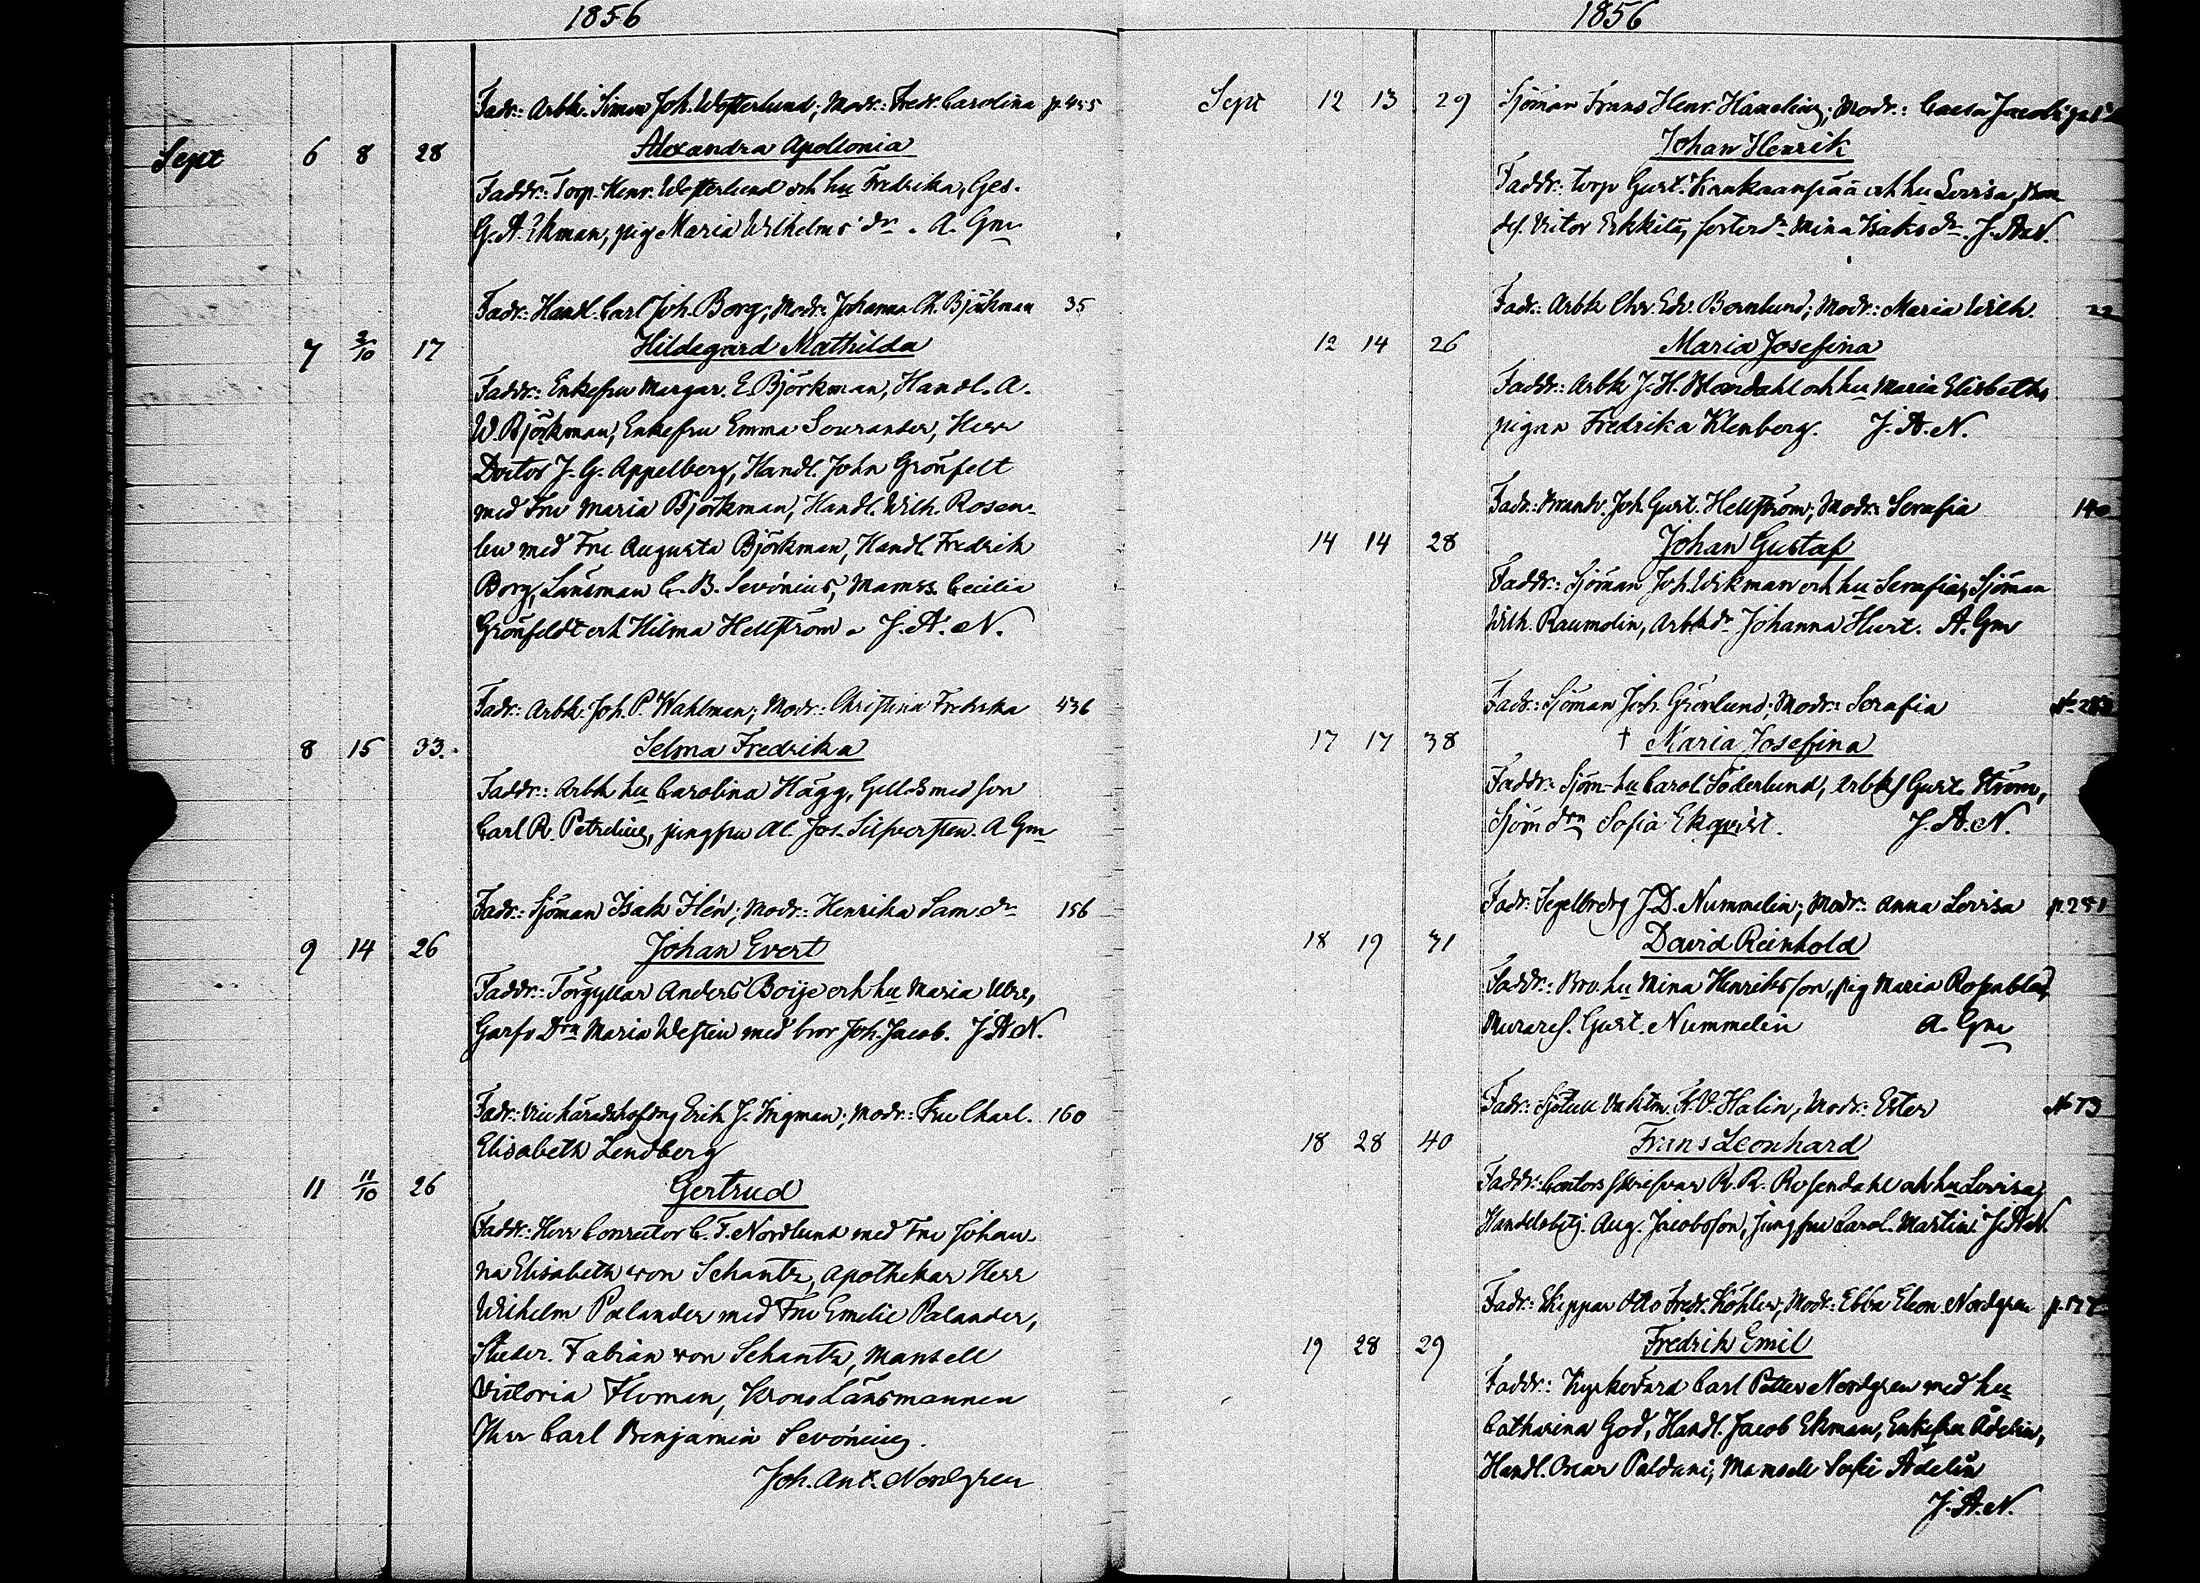 1856
Fadr: Arbk. Simon Joh. Westerlund; Modr: Fredr. Carolina p. 455
Sept 6 8 28 Alexandra Apollonia
Faddr: Torp. Henr. Westerlund och hu Fredrika, Ges.
G. A. Ekman, pig Maria Wilhelms dr. A. Gm
Fadr: Handl. Carl Joh. Borg; Modr: Johanna Ch. Björkman 35
7 5/10 17 Hildegard Mathilda
Faddr: Enkefru Margar. E. Björkman, Handl. A.
W. Björkman, Enkefru Emma Sourander, Herr
Doctor J. G. Appelberg, Handl. John Grönfelt
med Fru Maria Björkman, Handl. Wilh. Rosen-
lew med Fru Augusta Björkman, Handl Fredrik
Borg, Länsman C. B. Sevónius, Mamss. Cecilia
Grönfeldt och Hilma Hellström. J. A. N.
Fadr: Arbk. Joh. P. Wahlman; Modr: Christina Fredrika 436
8 15 33. Selma Fredrika
Faddr: Arbk hu Carolina Hägg, Gulldsmed son
Carl R. Petrelius, jungfru Al. Jos. Silfversten. A Gm
Fadr: Sjöman Isak Ilén; Modr: Henrika Sam. dr 156
9 14 26 Johan Evert
Faddr: Förgyllar Anders Boije och hu Maria Ulr.,
Garfv. Drn Maria Westin med bror Joh. Jacob. J. A. N.
Fadr: Vice häradshöfdng Erik J. Ingman; Modr: Fru Charl. 160
Elisabeth Lindberg
11 11/10 26 Gertrud
Faddr: Herr Conrector C. F. Nordlund med Fru Johan-
na Elisabeth von Schantz, Apothekar Herr
Wilhelm Palander med Fru Emelie Palander,
Studer. Fabian von Schantz, Mamsell
Victoria Floman, Krons Länsmannen
Herr Carl Benjamin Sevónius.
Joh. Ant. Nordgren
1856
Sept 12 13 29 Sjöman Frans Henr. Hamelin; Modr: Caesa Jacob
Johan Henrik
Faddr: torp Gust. Knukaanpää och hu Lovisa,
Victor Erkkilä, fosterdr Mina Isaks dr. J. A. N.
Fadr: Arbk Chr. Edv. Bernlund; Modr: Maria Wilh. 22
12 14 26 Maria Josefina
Faddr: Arbk J. H. Blomdahl och hu Maria Elisbeth,
pigan Fredrika Klenberg. J. A. N.
Fadr: Joh Gust. Hellström; Modr: Serafia 140
14 14 28 Johan Gustaf
Faddr: Sjöman Joh. Wikman och hu Serafia, Sjöman
Wilh. Raumolin, Arbkdr Johanna Hurt. A. Gm
Fadr: Sjöman Joh. Grönlund; Modr: Serafia
17 17 38 † Maria Josefina
Faddr: Sjöm-hu Carol. Söderlund, Arbk Gust. Ström,
Sjöm drn Sofia Ekqvist. J. A. N.
Fadr: J. D. Nummelin; Modr: Anna Lovisa p. 251
18 19 31 David Reinhold
Faddr: hu Mina Henriksson, pig Maria Rosenblad,
Gust. Nummelin A. Gm
Fadr: Sjötull Vaktm. F. V. Halin, Modr: Ester No 73
18 28 40 Frans Leonhard
Faddr: Contors skrifvar R. R. Rosendahl och hu Lovisa,
Handelsbetj. Aug. Jacobsson, Jungfru Carol. Martin J. A. N.
Fadr: Skeppar Otto Fredr. Köhler; Modr: Ebba Eleon. Nordgren
19 28 29 Fredrik Emil
Faddr: Kyrkovärd Carl Petter Nordgren med hu
Catharina God, Handl. Jacob Ekman, Enkefru Ådelin,
Handl. Oscar Paldani, Mamsell Sofie Ådelin
J. A. N.